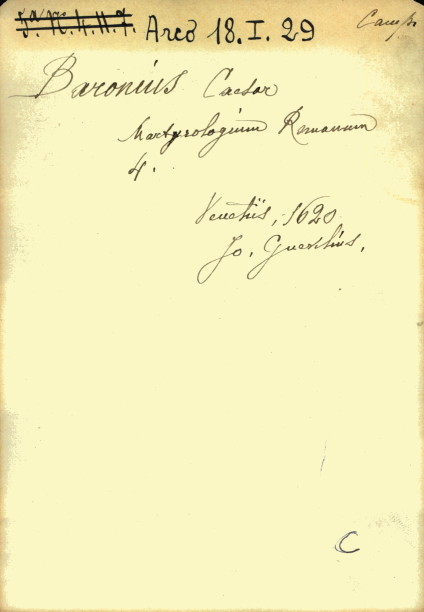 Arco 18.I.29
Baronius Caesar
Martyrologium Romanum
4.
Venetiis, 1620
Jo. Guerilius.
C